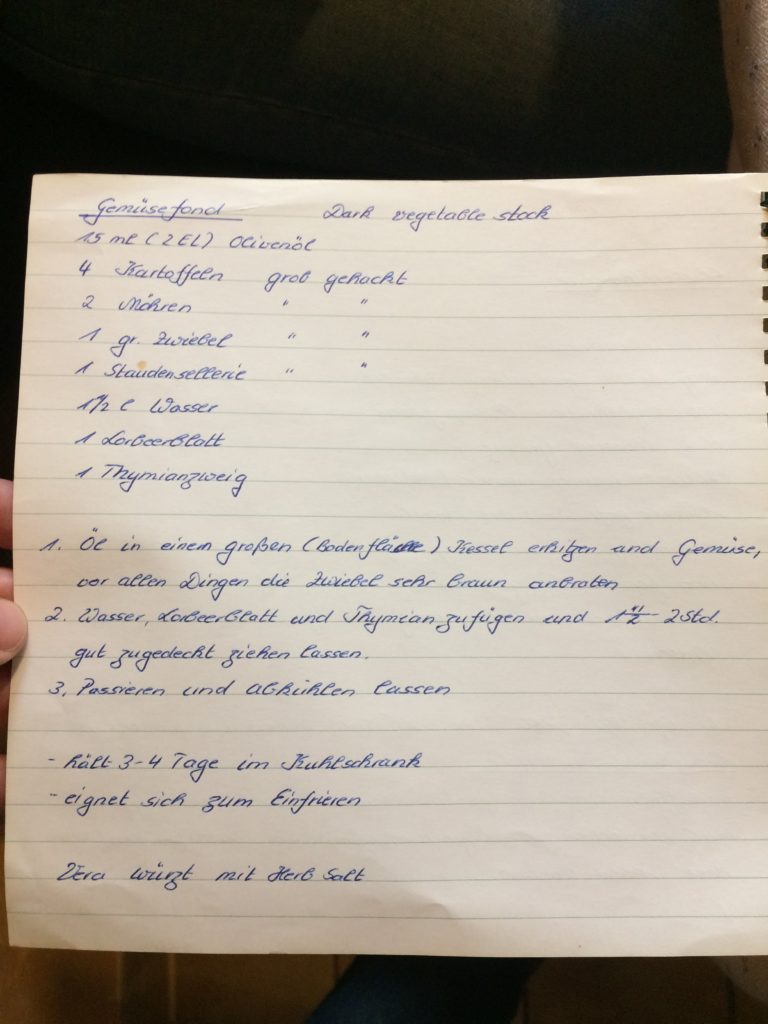 Gemüsefond Dark vegetable stock
15 ml (2 EL) Olivenöl
4 Kartoffeln grob gehackt
2 Möhren " "
1 gr. Zwiebel " "
1 Staudensellerie " "
1 1/2 l Wasser
1 Lorbeerblatt
1 Thymianzweig
1. Öl in einem großen (Bodenfläche) Kessel erhitzen und Gemüse,
vor allen Dingen die Zwiebel sehr braun anbraten
2. Wasser, Lorbeerblatt und Thymian zufügen und 1 1/2 - 2 Std.
gut zugedeckt ziehen lassen.
3. Passieren und abkühlen lassen
- hält 3-4 Tage im Kühlschrank
- eignet sich zum Einfrieren
Vera würzt mit Herb Salt